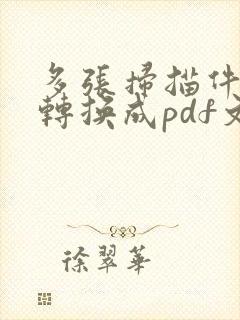 多張掃描件
轉換成pdf文
徐翠華